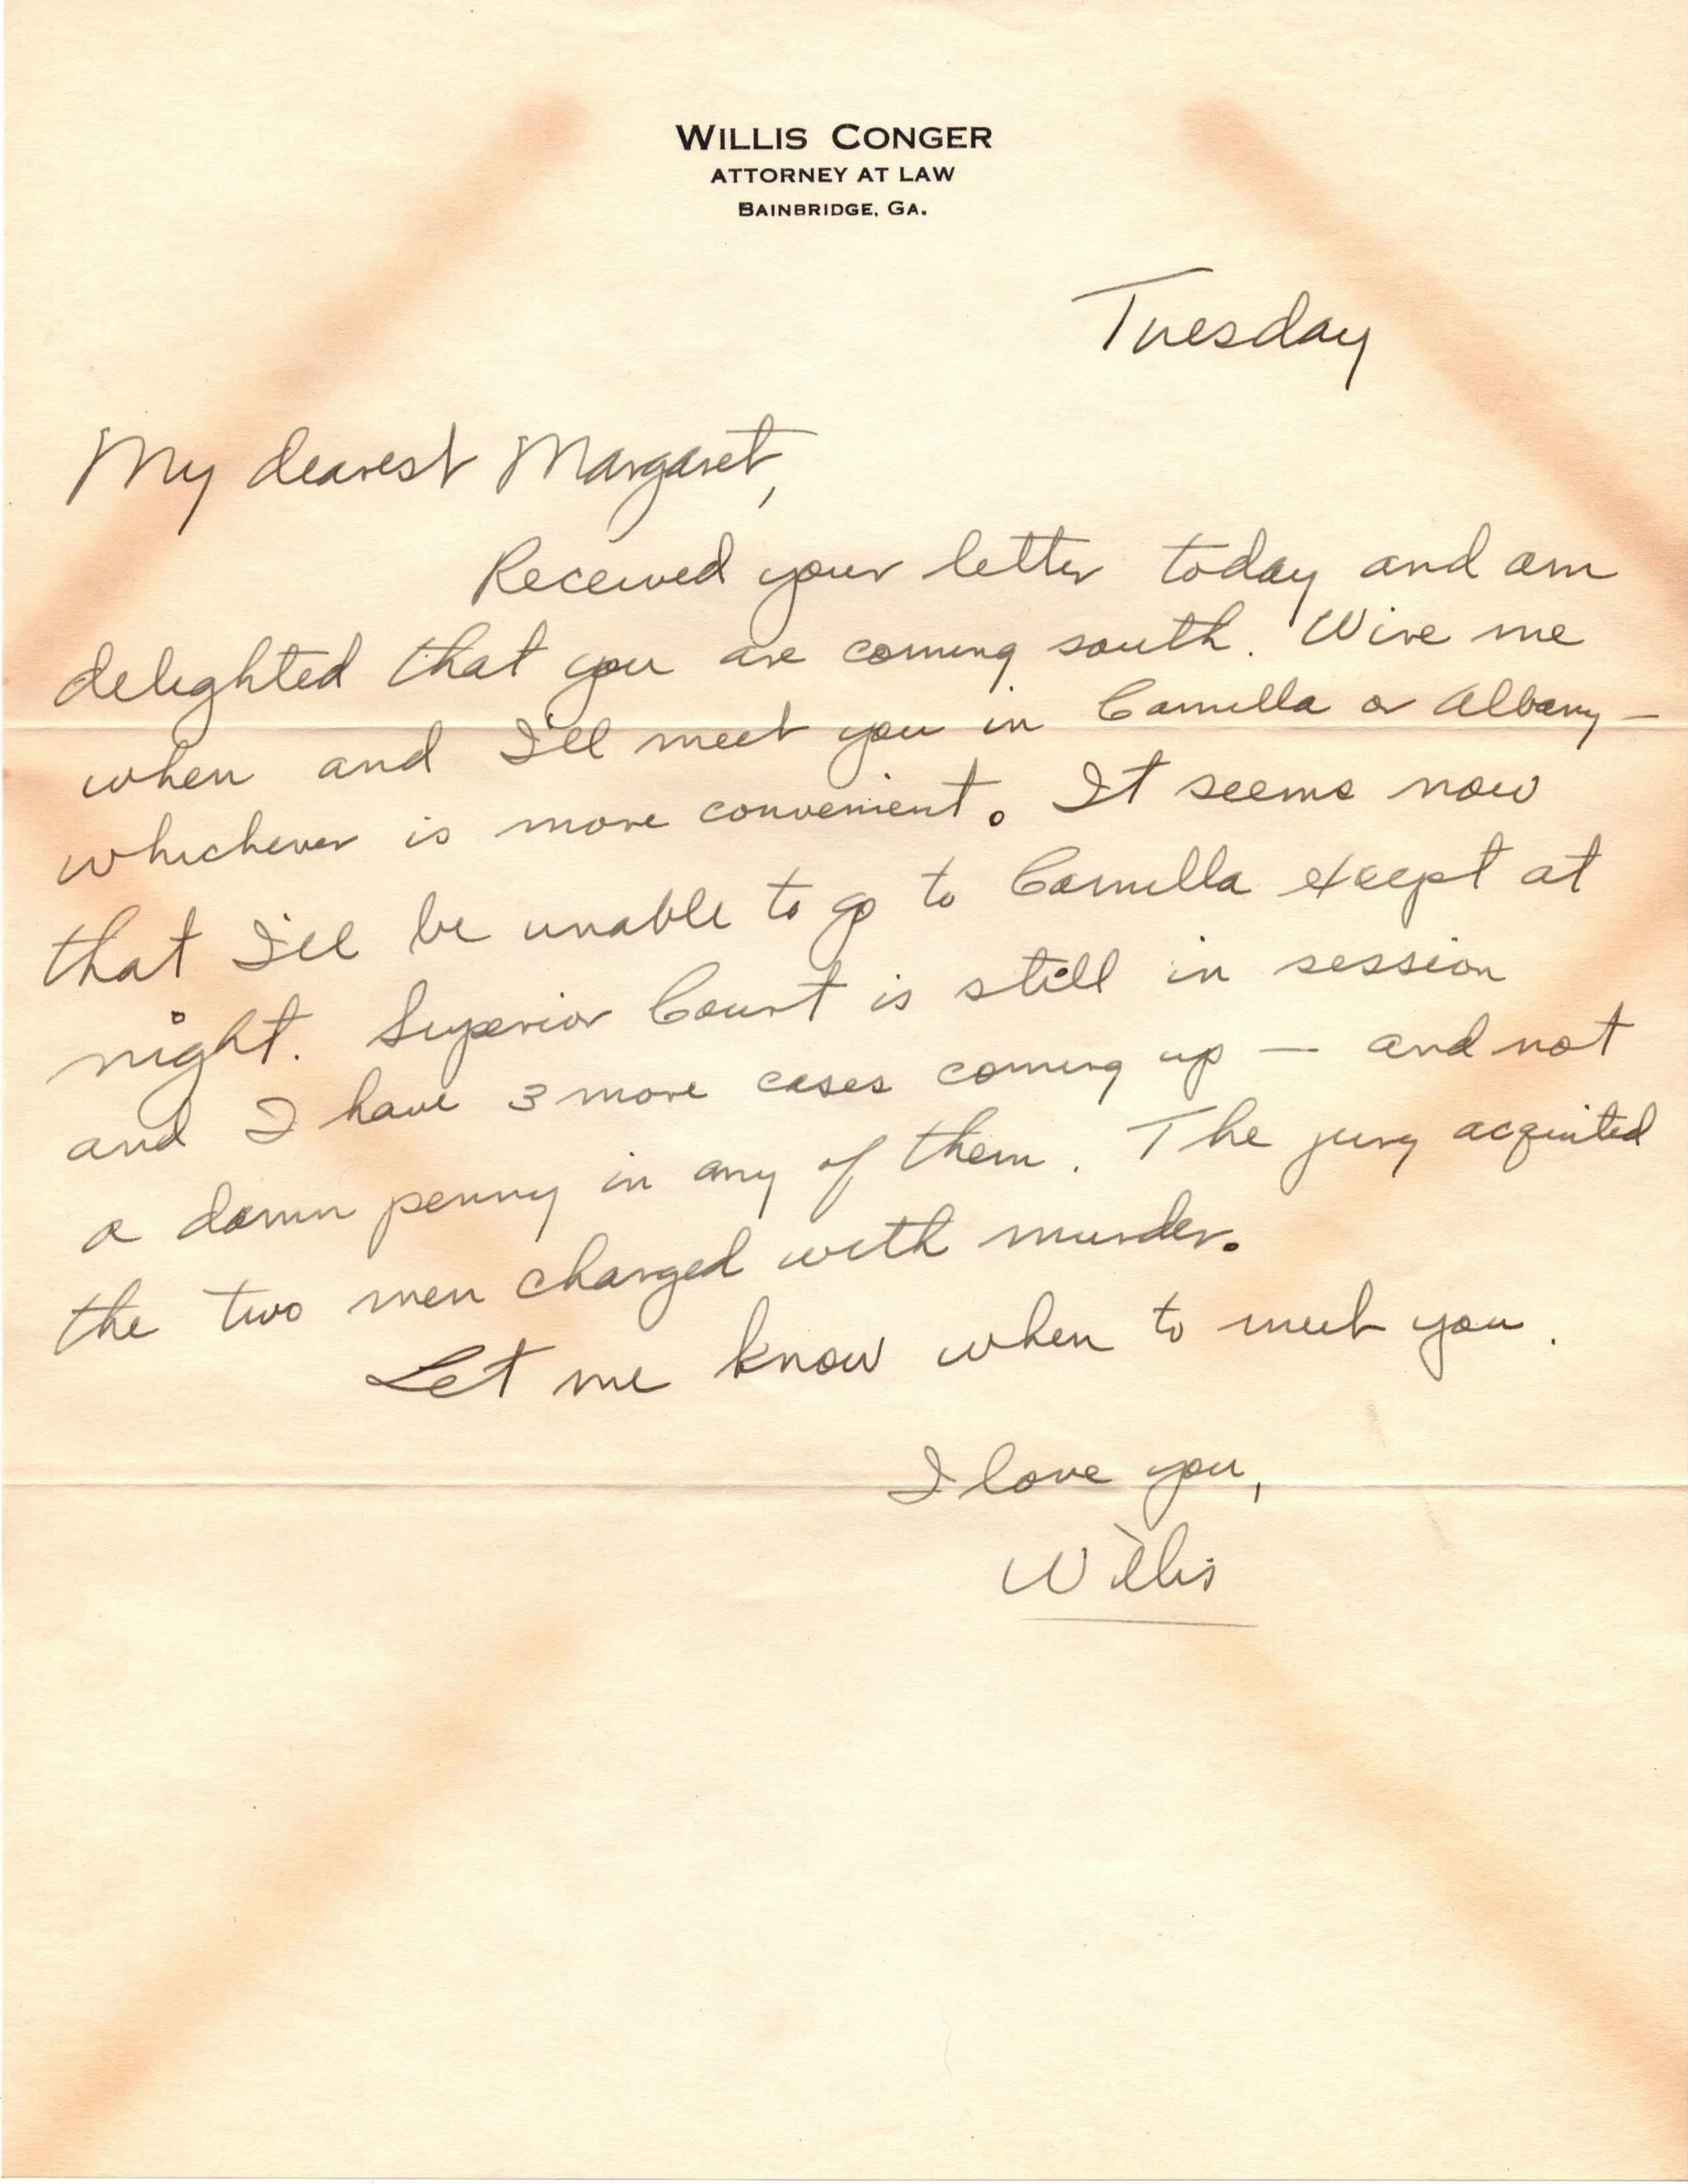 WILLIS CONGER
ATTORNEY AT LAW
BAINBRIDGE, GA.
Tuesday
My dearest Margaret,
Received your letter today and am
delighted that you are coming south. Wire me
when and I'll meet you in Camilla or Albany –
whichever is more convenient. It seems now
that I'll be unable to go to Camilla except at
night. Superior Court is still in session
and I have 3 more cases coming up — and not
a damn penny in any of them. The jury acquited
the two men charged with murder.
Let me know when to meet you.
I love you,
Willis